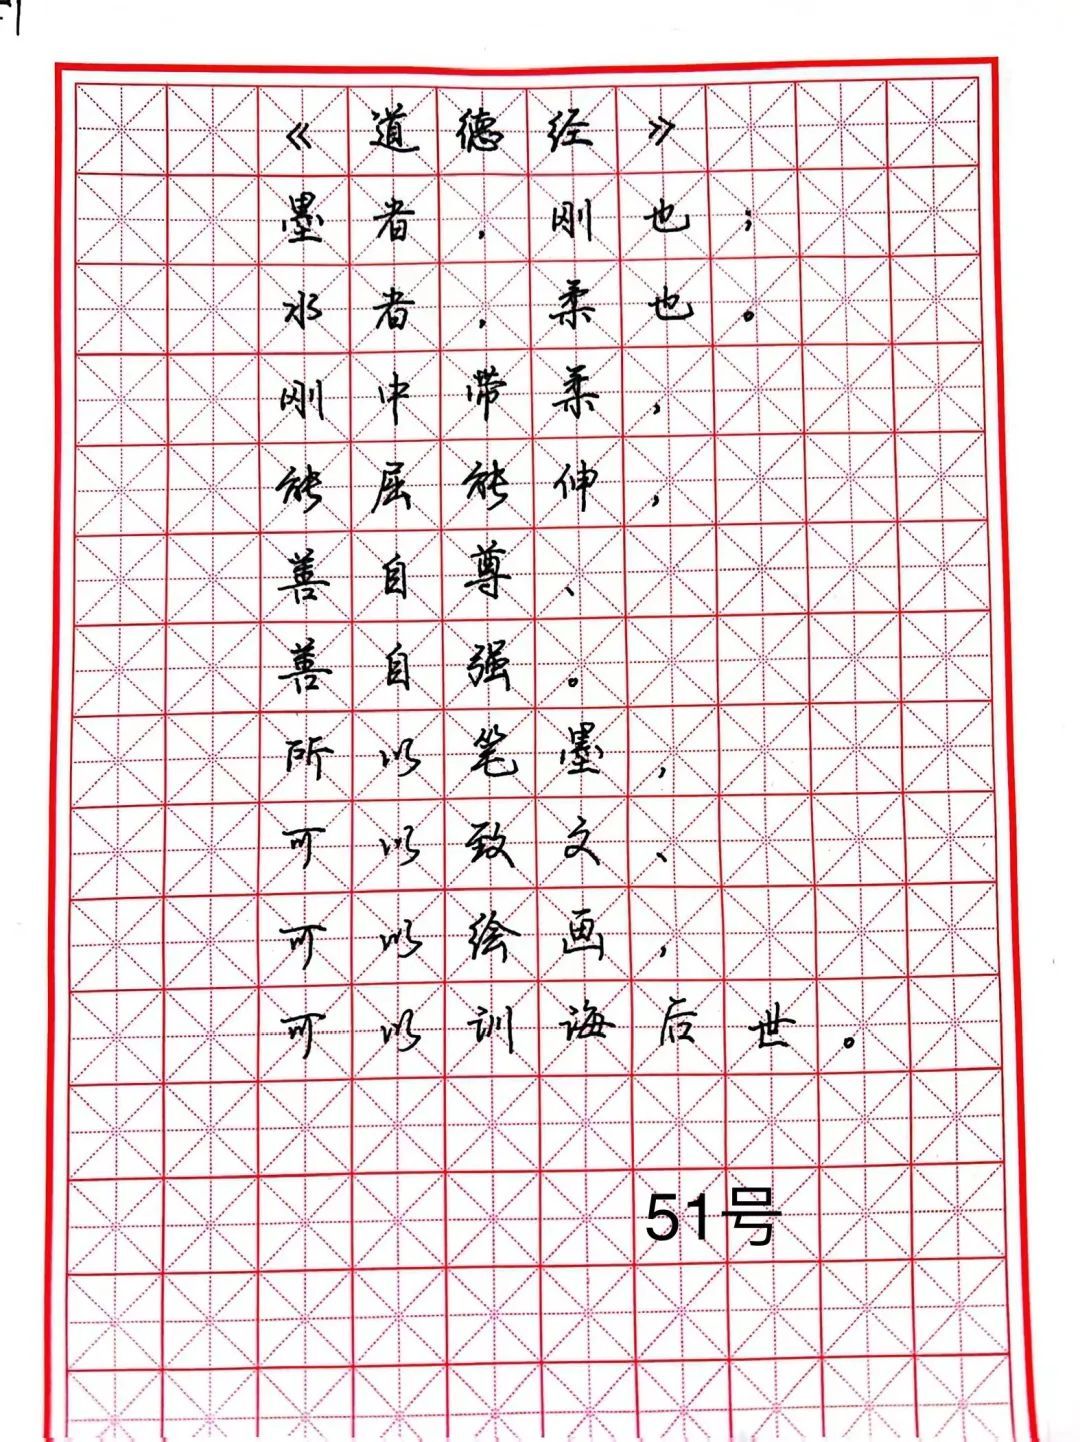 《道德经》
墨者，刚也；
水者，柔也。
刚中带柔，
能屈能伸，
善自尊、
善自强。
所以笔墨，
可以致文、
可以绘画，
可以训诲后世。
51号